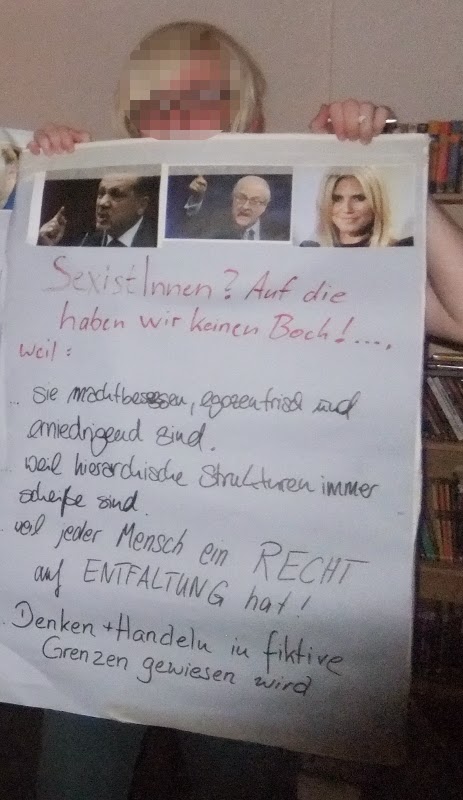 SexistInnen? Auf die
haben wir keinen Boch!....,
weil:
... sie machtbesessen, egozentrisch und
erniedrigend sind.
... weil hierarchische Strukturen immer
scheiße sind.
... weil jeder Mensch ein RECHT
auf ENTFALTUNG hat!
. Denken + Handeln in fiktive
Grenzen gewiesen wird